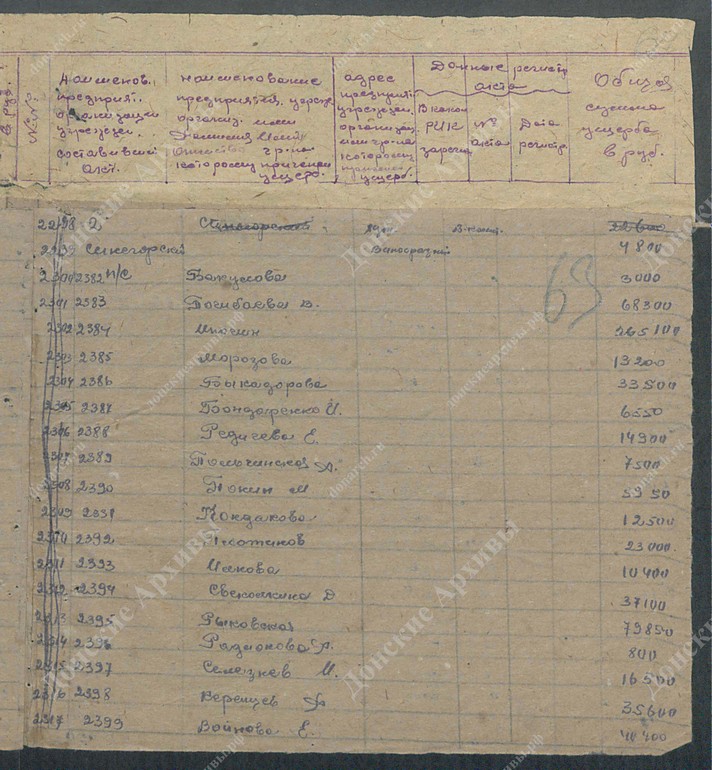 Наименов. предприят. организации учрежден. составивший акт.
наименование предприятия, учрежд. организ. или Фамилия Имя Отчество гр-на которому причинен ущерб.
адрес предприят. учрежден. организац. или гр-на которому причинен ущерб.
Данные регистр. акта
В каком РИК зарегис
№ акта
Дата регистр.
Общая сумма ущерба в руб.
2298
2299 Синегорский 4800
2300 2382 п/с Бакулова 3000
2301 2383 68300
2302 2384 265100
2303 2385 Морозова 13200
2304 2386 Быкадорова 33500
2305 2387 Бондаренко И. 6550
2306 2388 Редичева Е. 14900
2307 2389 7500
2308 2390 Бокин М 5950
2309 2391 Кондакова 12500
2310 2392 Плотников 23000
2311 2393 10400
2312 2394 Д 37100
2313 2395 Рыковская 79850
2314 2396 Радионова 800
2315 2397 Селезнев И. 16500
2316 2398 35600
2317 2399 Войнова Е. 40400
63
Донские Архивы
donarch.ru
донскиеархивы.рф